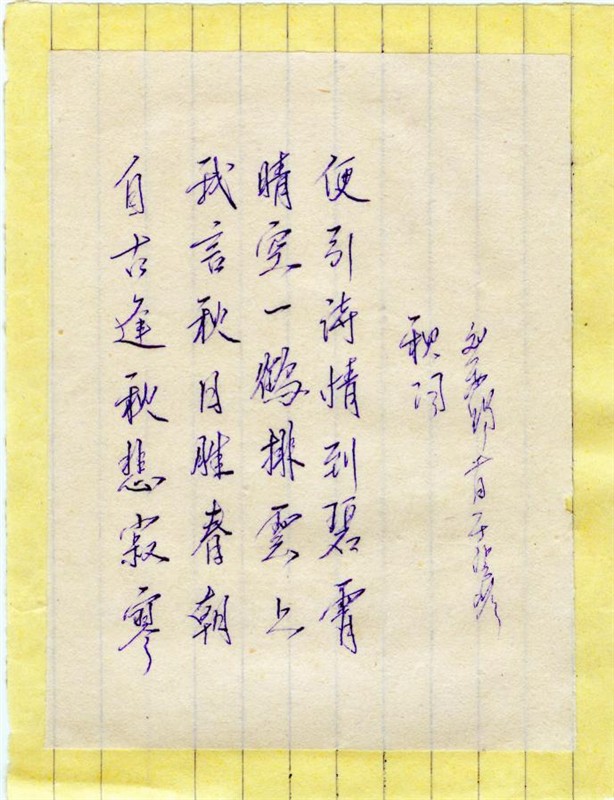 自古逢秋悲寂寥
我言秋日胜春朝
晴空一鹤排雲上
便引诗情到碧霄
秋词
刘禹锡